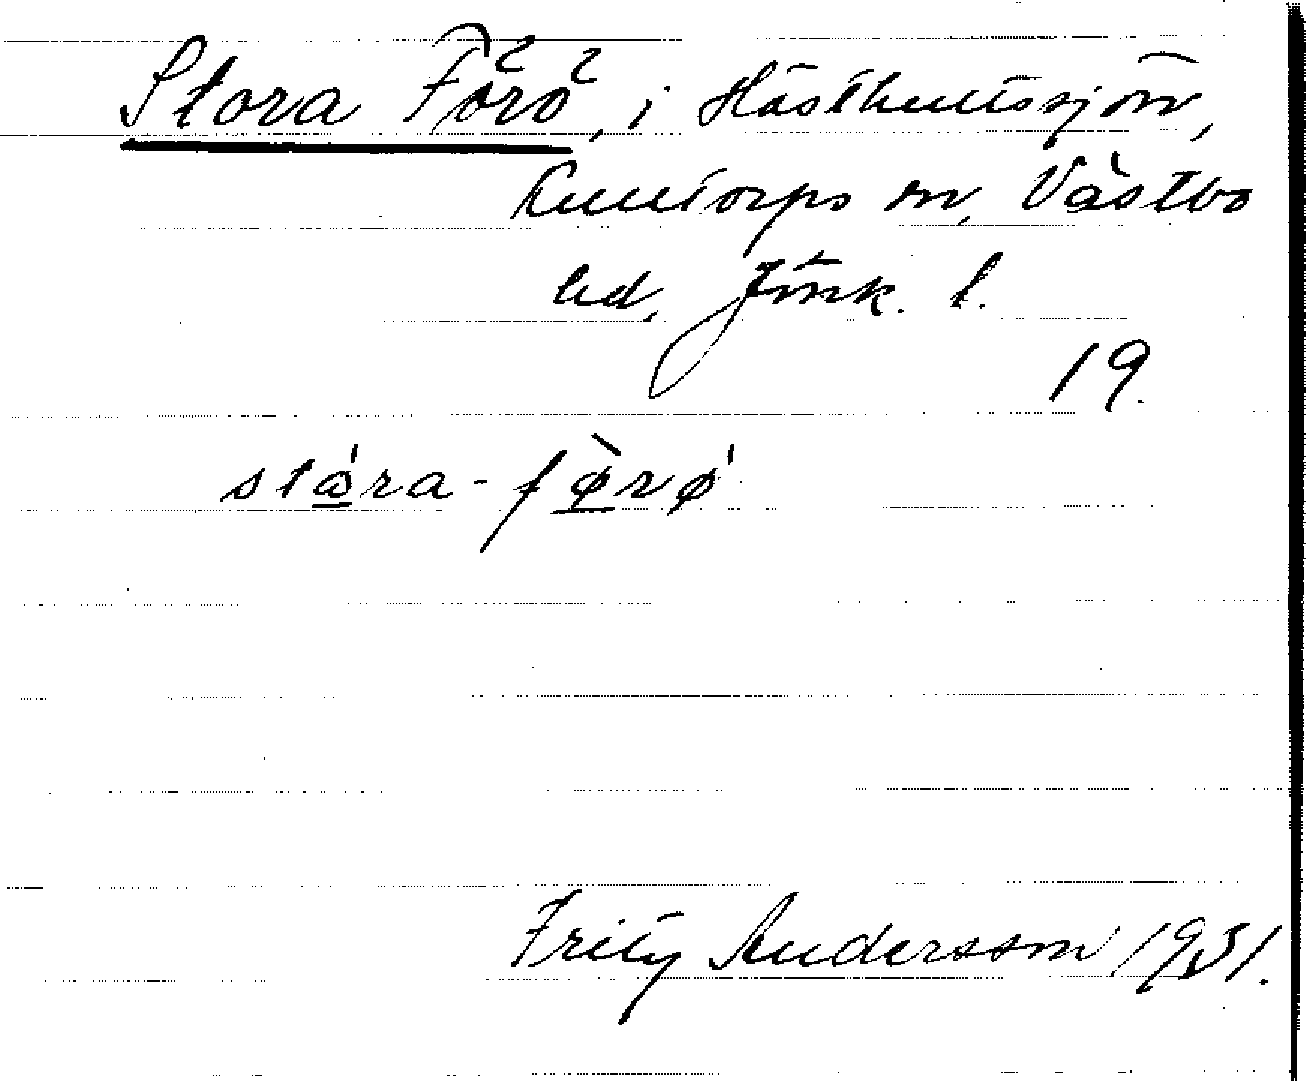 Stora Förö, i Hästhultssjön,
Kulltorps sn, Västbo
hd, Jönk. l.
19.
stǻra-fø̀rǿ
Fritz Andersson 1931.